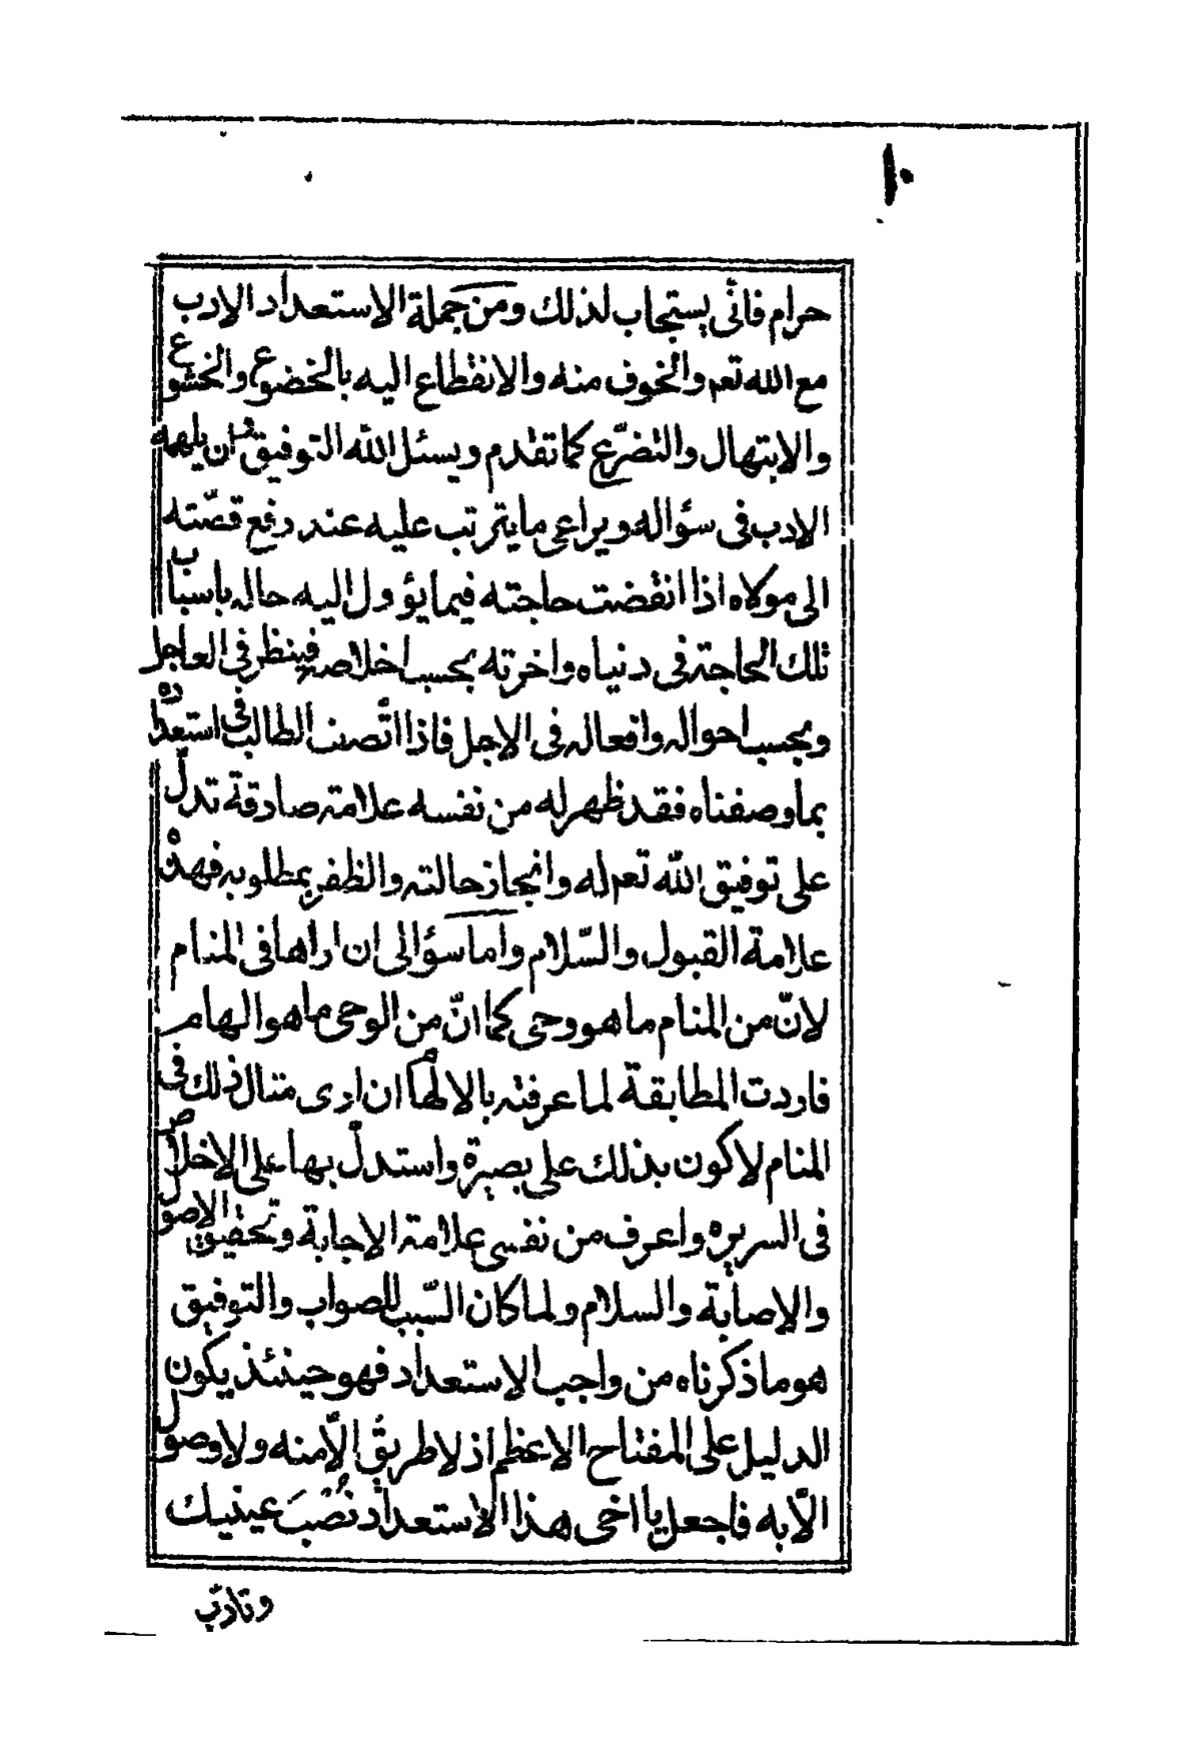 ١٠
حرام فانّى يستجاب لذلك ومن جملة الاستعداد الادب
مع الله تعم والخوف منه والانقطاع اليه بالخضوع والخشوع
والابتهال والتضرّع كما تقدم ويسئل الله التوفيق ان يلهمه
الادب فى سؤاله ويراعى ما يترتب عليه عند رفع قصّته
الى مولاه اذا انقضت حاجته فيما يؤول اليه حاله باسباب
تلك الحاجة فى دنياه واخرته بحسب اخلاصه فينظر فى العاجل
وبحسب احواله وافعاله فى الاجل فاذا اتّصف الطالب فى استعداده
بما وصفناه فقد ظهر له من نفسه علامة صادقة تدلّ
على توفيق اللّه تعم له وانجاز حالته والظفر بمطلوبه فهذه
علامة القبول والسّلام واما سؤالى ان اراها فى المنام
لانّ من المنام ما هو وحى كما انّ من الوحى ما هو الهام
فاردت المطابقة لما عرفته بالالهام ان ارى مثال ذلك فى
المنام لاكون بذلك على بصيرة واستدلّ بها على الاخلاص
فى السريره واعرف من نفسى علامة الاجابة وتحقيق الاصول
والاصابة والسلام ولما كان السّبب للصواب والتوفيق
هو ما ذكرناه من واجب الاستعداد فهو حينئذ يكون
الدليل على المفتاح الاعظم اذ لا طريق الّا منه ولا وصول
الّا به فاجعل يا اخى هذا الاستعداد نُصْبَ عينيك
وتادّب